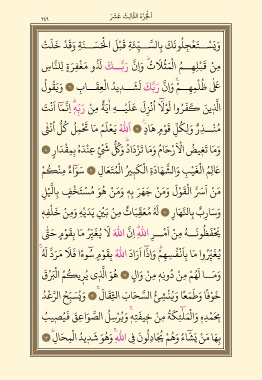 الجزء الثالث عشر
٢٤٩
وَيَسْتَعْجِلُونَكَ بِالسَّيِّئَةِ قَبْلَ الْحَسَنَةِ وَقَدْ خَلَتْ
مِنْ قَبْلِهِمُ الْمَثُلَاتُ وَاِنَّ رَبَّكَ لَذُو مَغْفِرَةٍ لِلنَّاسِ
عَلٰى ظُلْمِهِمْ وَاِنَّ رَبَّكَ لَشَدِيدُ الْعِقَابِ ٦ وَيَقُولُ
الَّذِينَ كَفَرُوا لَوْلَا اُنْزِلَ عَلَيْهِ اٰيَةٌ مِنْ رَبِّهِ اِنَّمَا اَنْتَ
مُنْذِرٌ وَلِكُلِّ قَوْمٍ هَادٍ ٧ اَللّٰهُ يَعْلَمُ مَا تَحْمِلُ كُلُّ اُنْثٰى
وَمَا تَغِيضُ الْاَرْحَامُ وَمَا تَزْدَادُ وَكُلُّ شَيْءٍ عِنْدَهُ بِمِقْدَارٍ ٨
عَالِمُ الْغَيْبِ وَالشَّهَادَةِ الْكَبِيرُ الْمُتَعَالِ ٩ سَوَاءٌ مِنْكُمْ
مَنْ اَسَرَّ الْقَوْلَ وَمَنْ جَهَرَ بِهِ وَمَنْ هُوَ مُسْتَخْفٍ بِالَّيْلِ
وَسَارِبٌ بِالنَّهَارِ ١٠ لَهُ مُعَقِّبَاتٌ مِنْ بَيْنِ يَدَيْهِ وَمِنْ خَلْفِهِ
يَحْفَظُونَهُ مِنْ اَمْرِ اللّٰهِ اِنَّ اللّٰهَ لَا يُغَيِّرُ مَا بِقَوْمٍ حَتّٰى
يُغَيِّرُوا مَا بِاَنْفُسِهِمْ وَاِذَا اَرَادَ اللّٰهُ بِقَوْمٍ سُوءًا فَلَا مَرَدَّ لَهُ
وَمَا لَهُمْ مِنْ دُونِهِ مِنْ وَالٍ ١١ هُوَ الَّذِي يُرِيكُمُ الْبَرْقَ
خَوْفًا وَطَمَعًا وَيُنْشِئُ السَّحَابَ الثِّقَالَ ١٢ وَيُسَبِّحُ الرَّعْدُ
بِحَمْدِهِ وَالْمَلٰئِكَةُ مِنْ خِيفَتِهِ وَيُرْسِلُ الصَّوَاعِقَ فَيُصِيبُ
بِهَا مَنْ يَشَاءُ وَهُمْ يُجَادِلُونَ فِي اللّٰهِ وَهُوَ شَدِيدُ الْمِحَالِ ١٣